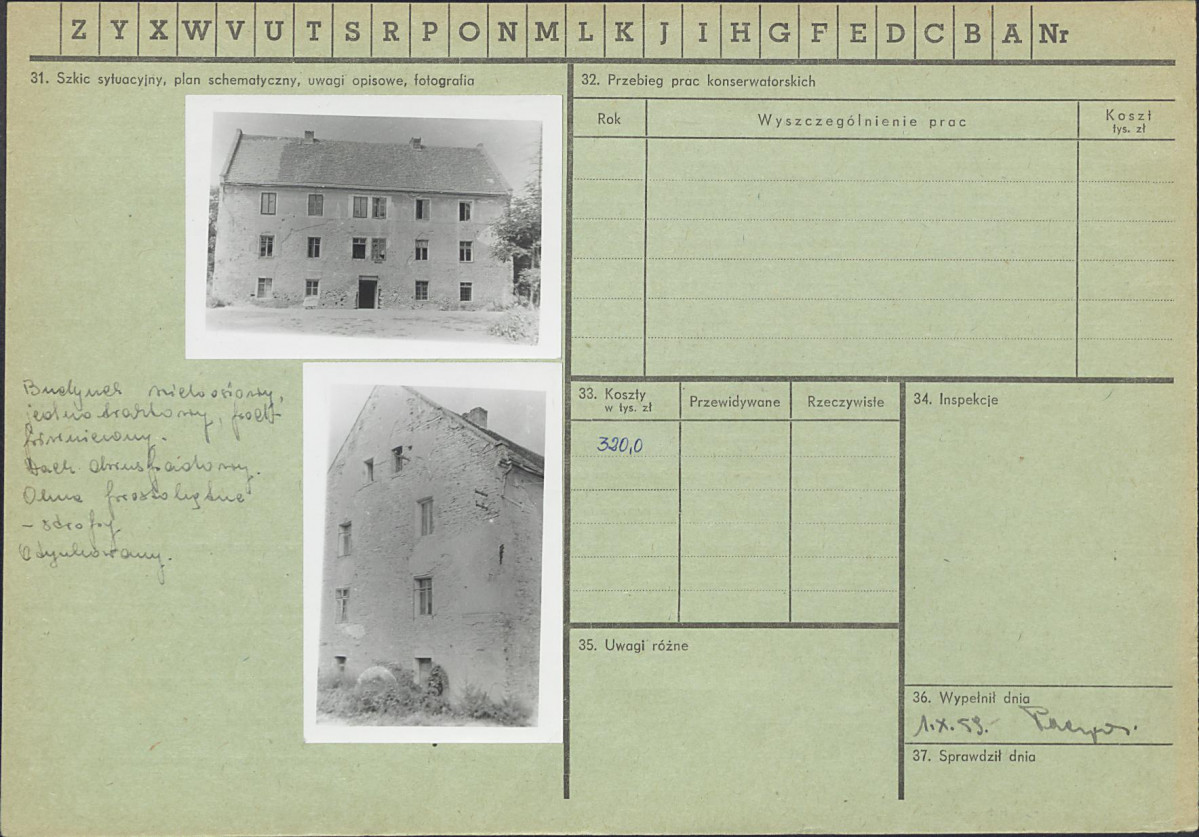 Z Y X W V U T S R P O N M L K J I H G F E D C B A Nr
31. Szkic sytuacyjny, plan schematyczny, uwagi opisowe, fotografia
Budynek
Dach
Okna prostokątne
Otynkowany.
32. Przebieg prac konserwatorskich
Rok
Wyszczególnienie prac
Koszt
tys. zł
33. Koszty
w tys. zł
Przewidywane
Rzeczywiste
320,0
34. Inspekcje
35. Uwagi różne
36. Wypełnił dnia
1.X.59.
37. Sprawdził dnia